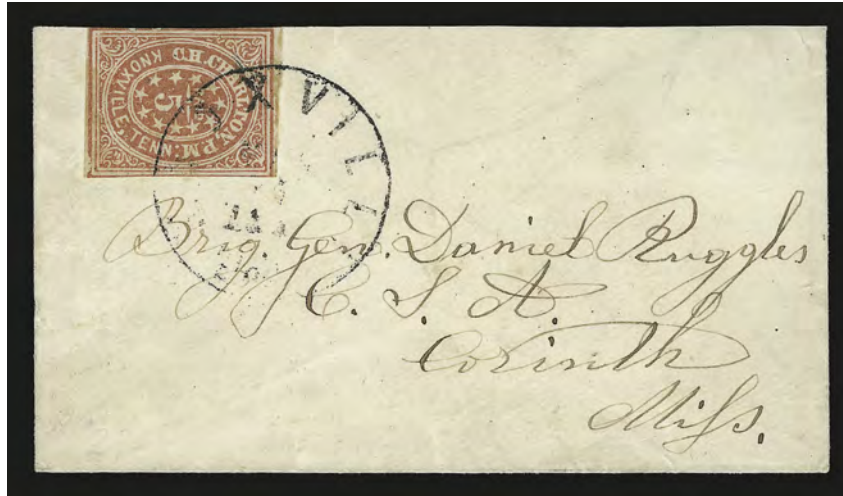 C.H. CHARLTON, P.M.
KNOXVILLE, TENN:
5
Brig. Gen. Daniel Ruggles
C. S. A.
Corinth
Miss.